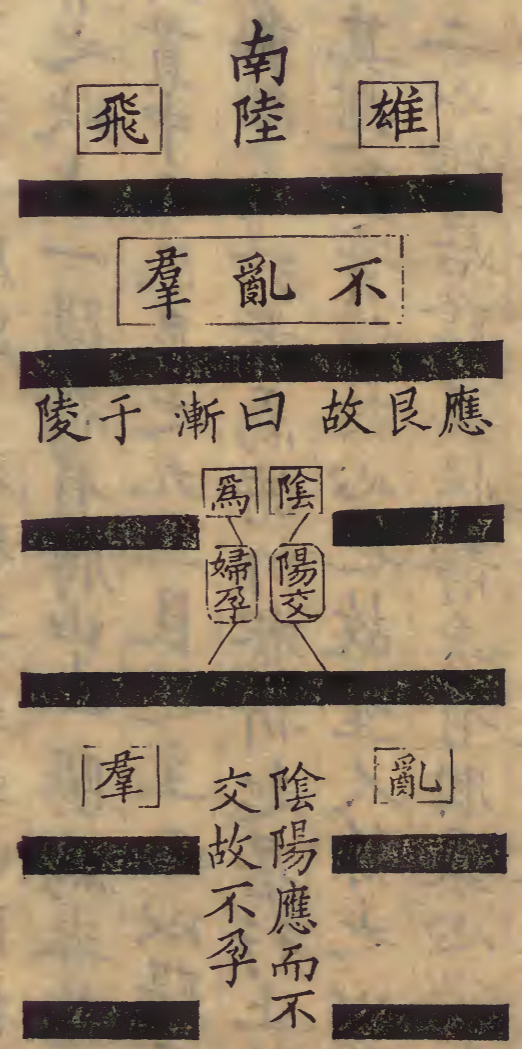 南陸
雄
飛
不亂羣
應艮故曰漸于陵
陰
爲
陽交
婦孕
亂
羣
陰陽應而不
交故不孕